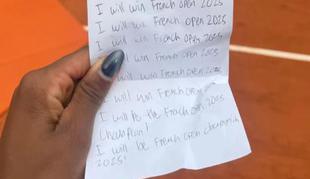 I will win French open 2025
I will win French open 2025
I will win French open 2025
I will win French open 2025
I will win French open 2025
I will win French open 2025
I will be the French open 2025
Champion!
I will be French open champion
2025!